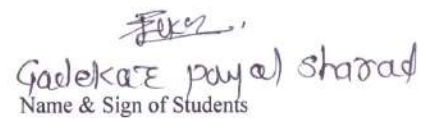 Gadekar payal sharad
Name & Sign of Students